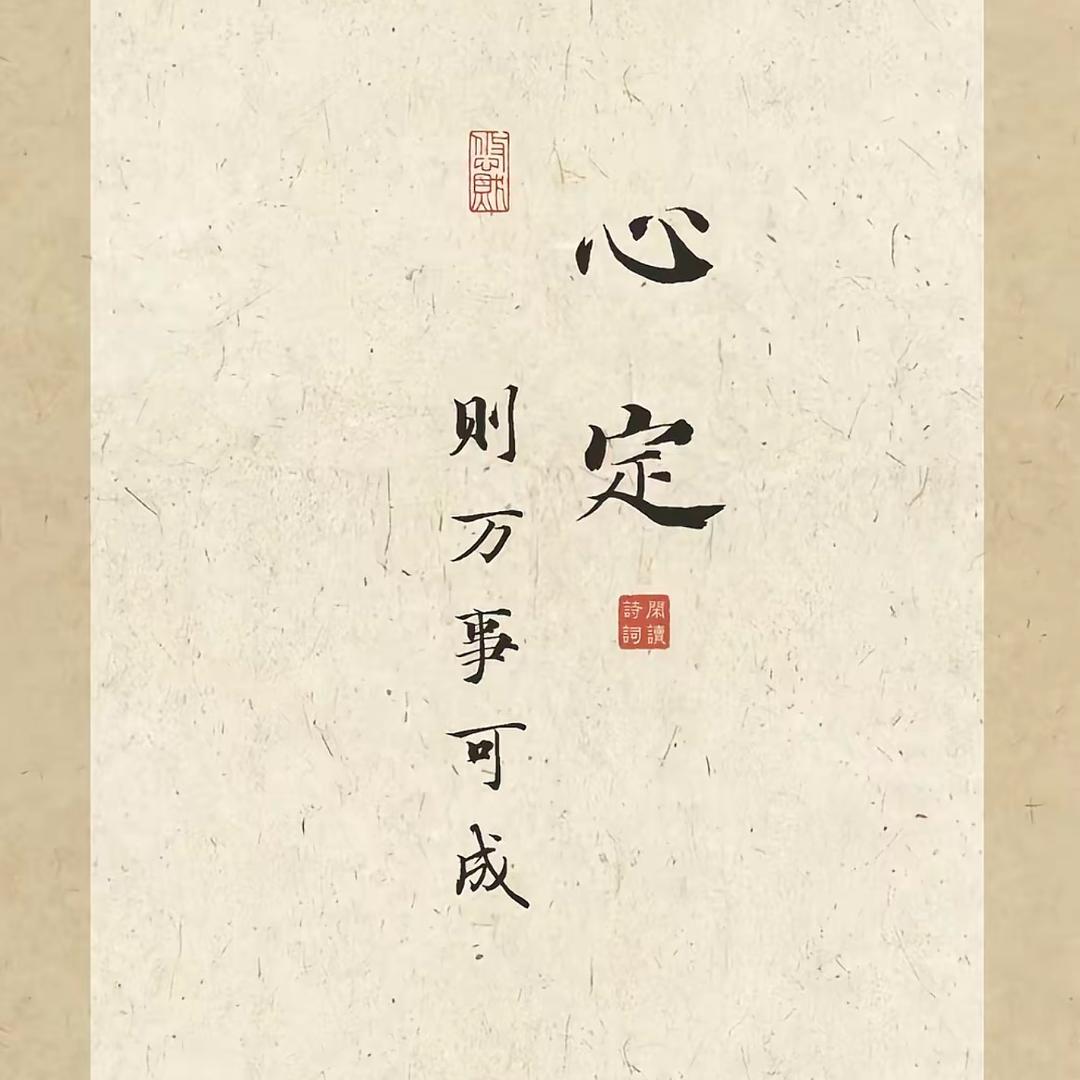 心定
閑讀詩詞
則万事可成